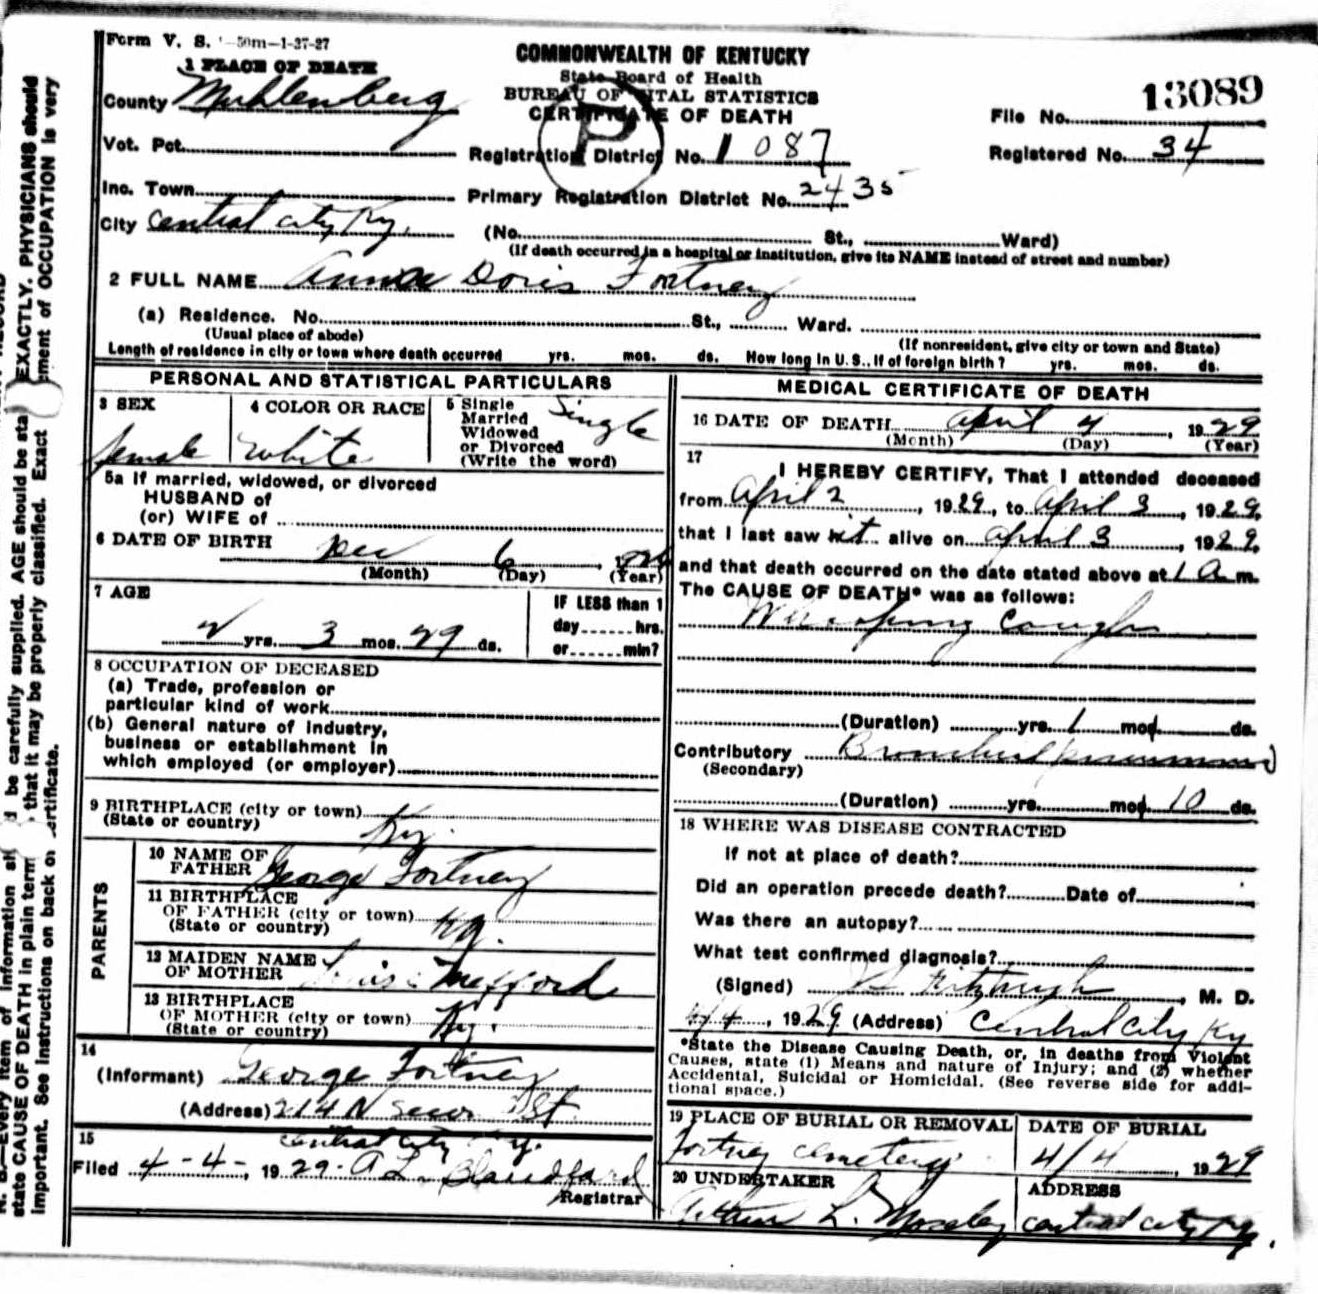 Form V. S. 50m-1-37-27
COMMONWEALTH OF KENTUCKY
State Board of Health
BUREAU OF VITAL STATISTICS
CERTIFICATE OF DEATH
P
13089
File No.
Registered No. 34
1 PLACE OF DEATH
County Muhlenberg
Vot. Pct.
Registration District No. 1087
Inc. Town
Primary Registration District No. 2435
City Central City Ky.
(No. St., Ward)
(If death occurred in a hospital or institution, give its NAME instead of street and number)
2 FULL NAME Anna Doris Fortney
(a) Residence. No. St., Ward.
(Usual place of abode)
(If nonresident, give city or town and State)
Length of residence in city or town where death occurred yrs. mos. ds. How long in U. S., if of foreign birth? yrs. mos. ds.
PERSONAL AND STATISTICAL PARTICULARS
3 SEX
female
4 COLOR OR RACE
White
5 Single
Married
Widowed
or Divorced
(Write the word)
Single
5a If married, widowed, or divorced
HUSBAND of
(or) WIFE of
6 DATE OF BIRTH
Dec 6
(Month) (Day) (Year)
7 AGE
2 yrs. 3 mos. 29 ds.
IF LESS than 1
day hrs.
or min?
8 OCCUPATION OF DECEASED
(a) Trade, profession or
particular kind of work
(b) General nature of industry,
business or establishment in
which employed (or employer)
9 BIRTHPLACE (city or town)
(State or country) Ky.
PARENTS
10 NAME OF
FATHER George Fortney
11 BIRTHPLACE
OF FATHER (city or town) Ky.
(State or country)
12 MAIDEN NAME
OF MOTHER Mefford
13 BIRTHPLACE
OF MOTHER (city or town) Ky.
(State or country)
14
(Informant) George Fortney
(Address) 214 N St.
Central City Ky.
15
Filed 4-4-, 1929. A L. Blandford
Registrar
MEDICAL CERTIFICATE OF DEATH
16 DATE OF DEATH April 4, 1929
(Month) (Day) (Year)
17
I HEREBY CERTIFY, That I attended deceased
from April 2, 1929, to April 3, 1929,
that I last saw alive on April 3, 1929,
and that death occurred on the date stated above at 1 a m.
The CAUSE OF DEATH* was as follows:
Whooping Cough
(Duration) yrs. 1 mos. ds.
Contributory Bronchial pneumonia
(Secondary)
(Duration) yrs. mos. 10 ds.
18 WHERE WAS DISEASE CONTRACTED
If not at place of death?
Did an operation precede death? Date of
Was there an autopsy?
What test confirmed diagnosis?
(Signed) Fitzhugh, M. D.
4/4, 1929 (Address) Central City Ky
*State the Disease Causing Death, or, in deaths from Violent
Causes, state (1) Means and nature of Injury; and (2) whether
Accidental, Suicidal or Homicidal. (See reverse side for addi-
tional space.)
19 PLACE OF BURIAL OR REMOVAL
Fortney Cemetery
DATE OF BURIAL
4/4, 1929
20 UNDERTAKER
Arthur L. Moseley
ADDRESS
Central City Ky.
be carefully supplied. AGE should be sta EXACTLY. PHYSICIANS should
that it may be properly classified. Exact ment of OCCUPATION is very
N. B.—Every item of information
state CAUSE OF DEATH in plain term
important. See instructions on back of certificate.